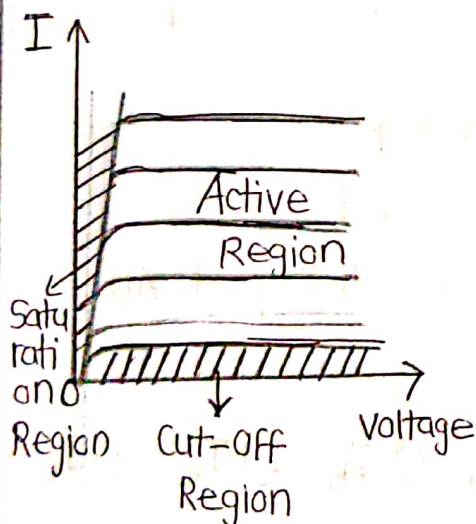 I
Active
Region
Satu
rati
on
O
Region
Cut-off
Region
Voltage